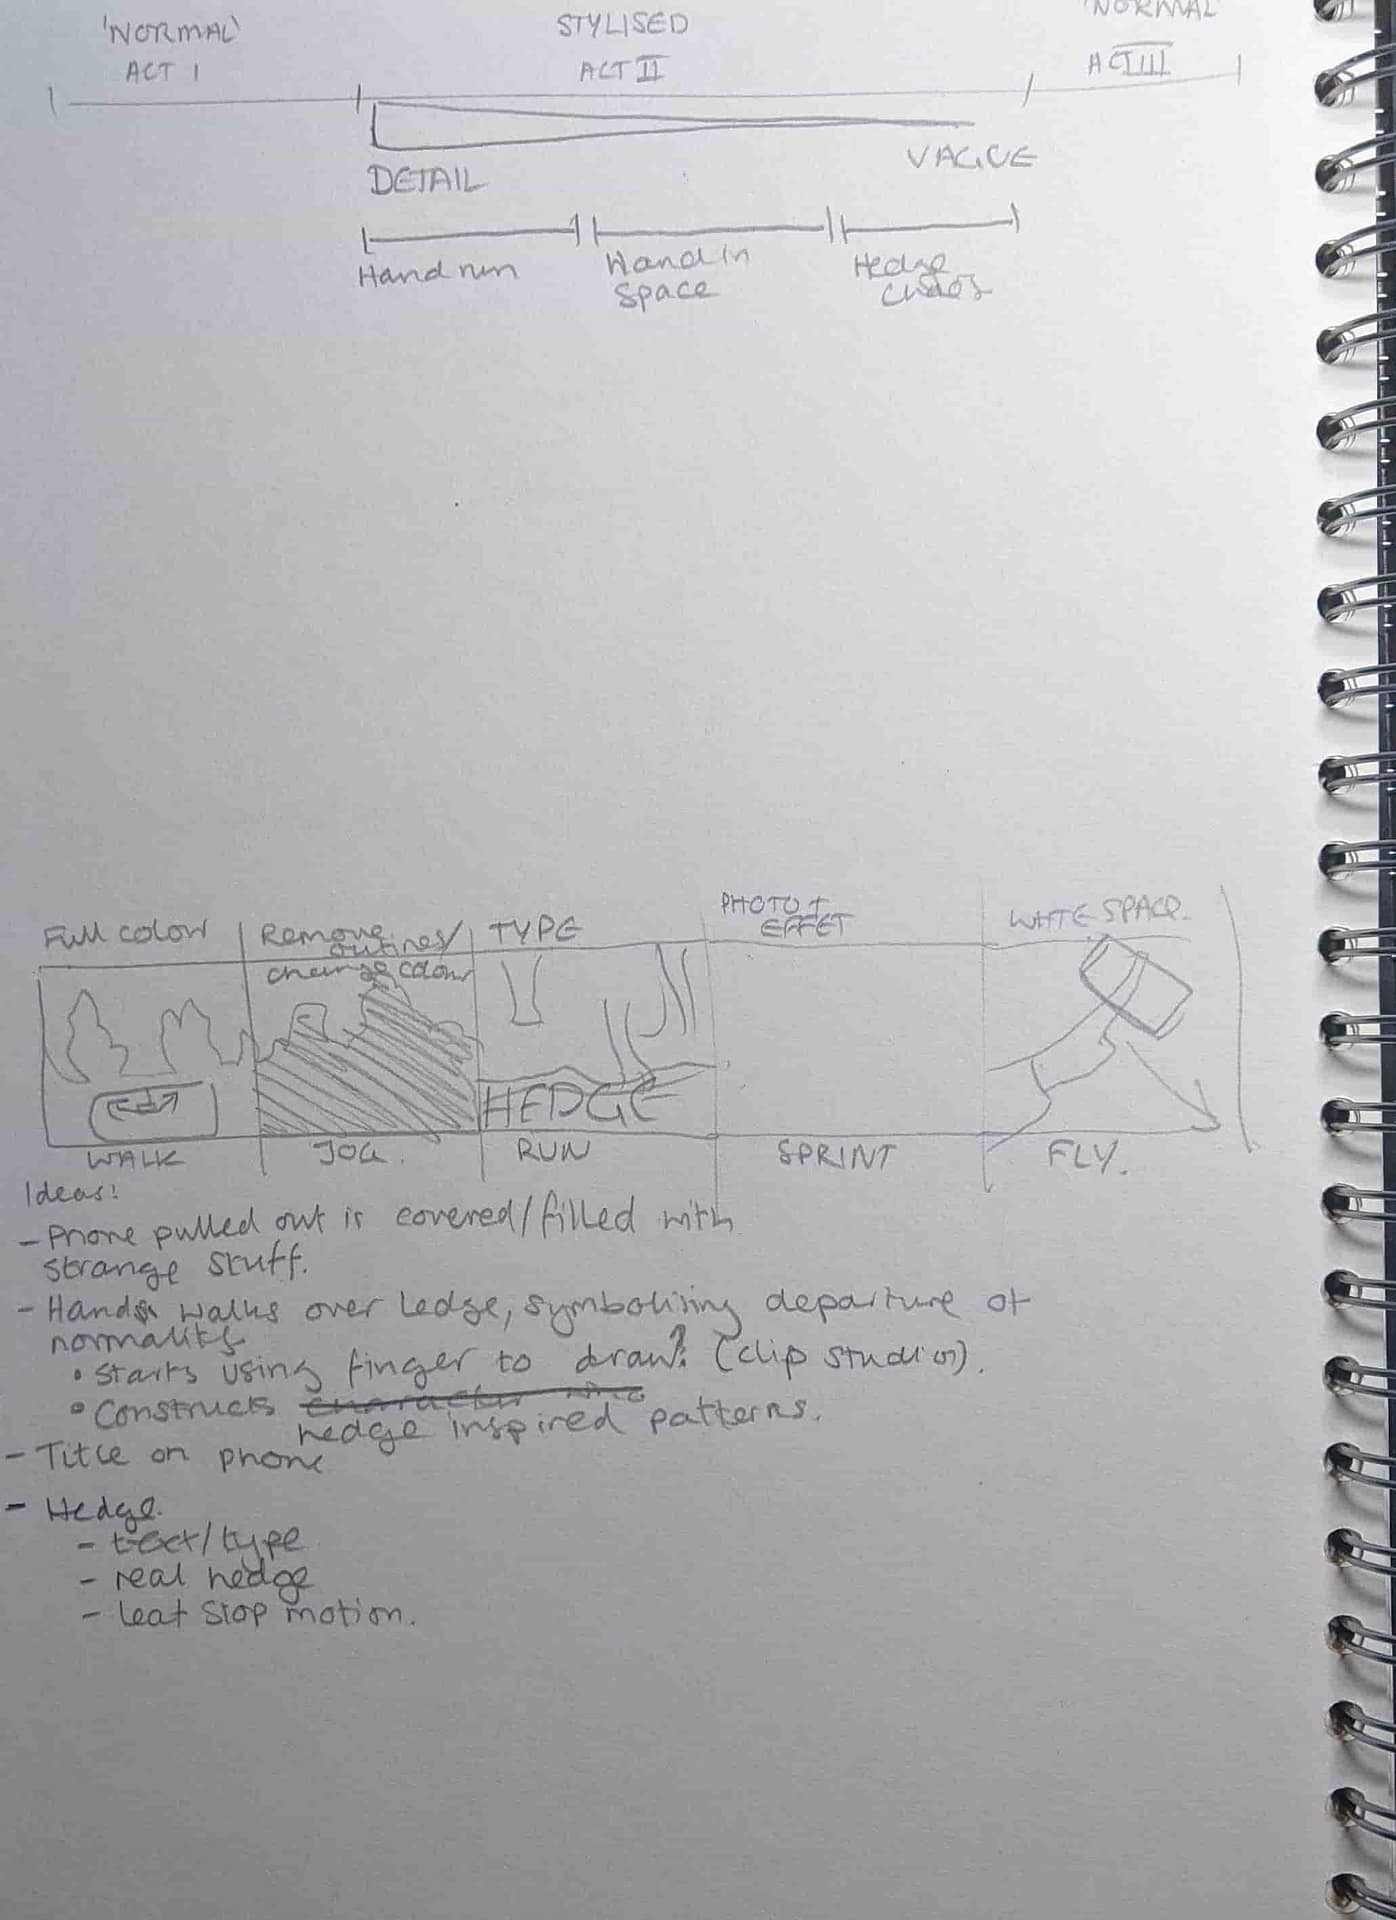 'NORMAL'
ACT I
STYLISED
ACT II
'NORMAL'
ACT III
DETAIL
VAGUE
Hand run
Hand in
Space
Hedge
chaos
Full colour
Remove
outlines/
change colour
TYPE
PHOTO +
EFFET
WHITE SPACE.
HEDGE
WALK
JOG.
RUN
SPRINT
FLY.
Ideas:
- Phone pulled out is covered/filled with
strange stuff.
- Hands walks over ledge, symbolising departure of
normality
• starts using finger to draw? (clip studio).
• Constructs character
hedge inspired patterns.
- Title on phone
- Hedge.
- text/type
- real hedge
- leaf stop motion.